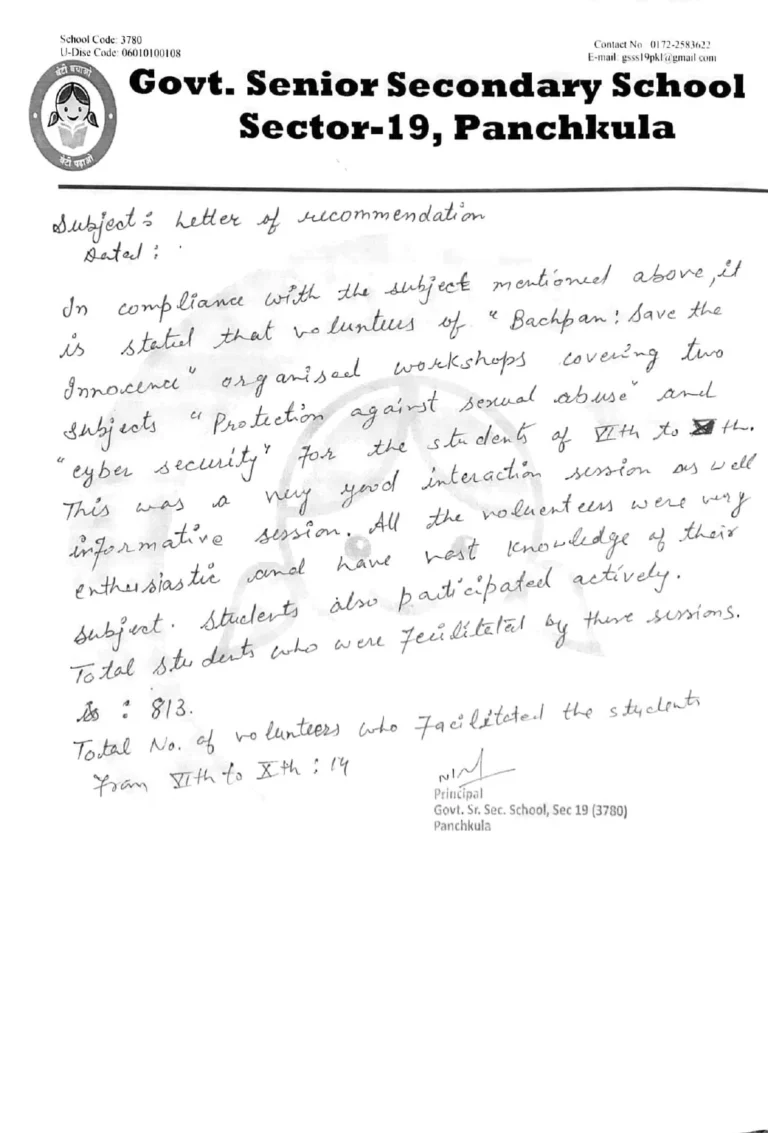 School Code: 3780
U-Dise Code: 06010100108
Contact No 0172-2583622
E-mail: gsss19pkl@gmail.com
बेटी बचाओ
बेटी पढ़ाओ
Govt. Senior Secondary School
Sector-19, Panchkula
Subject : Letter of recommendation
Dated :
In compliance with the subject mentioned above, it
is stated that volunteers of "Bachpan : Save the
Innocence" organised workshops covering two
subjects "Protection against sexual abuse" and
"cyber security" for the students of VIth to Xth.
This was a very good interaction session as well
informative session. All the volunteers were very
enthusiastic and have vast knowledge of their
subject. Students also participated actively.
Total students who were fecilitetat by these sessions.
is : 813.
Total No. of volunteers who facilitated the students
from VIth to Xth : 14
Principal
Govt. Sr. Sec. School, Sec 19 (3780)
Panchkula